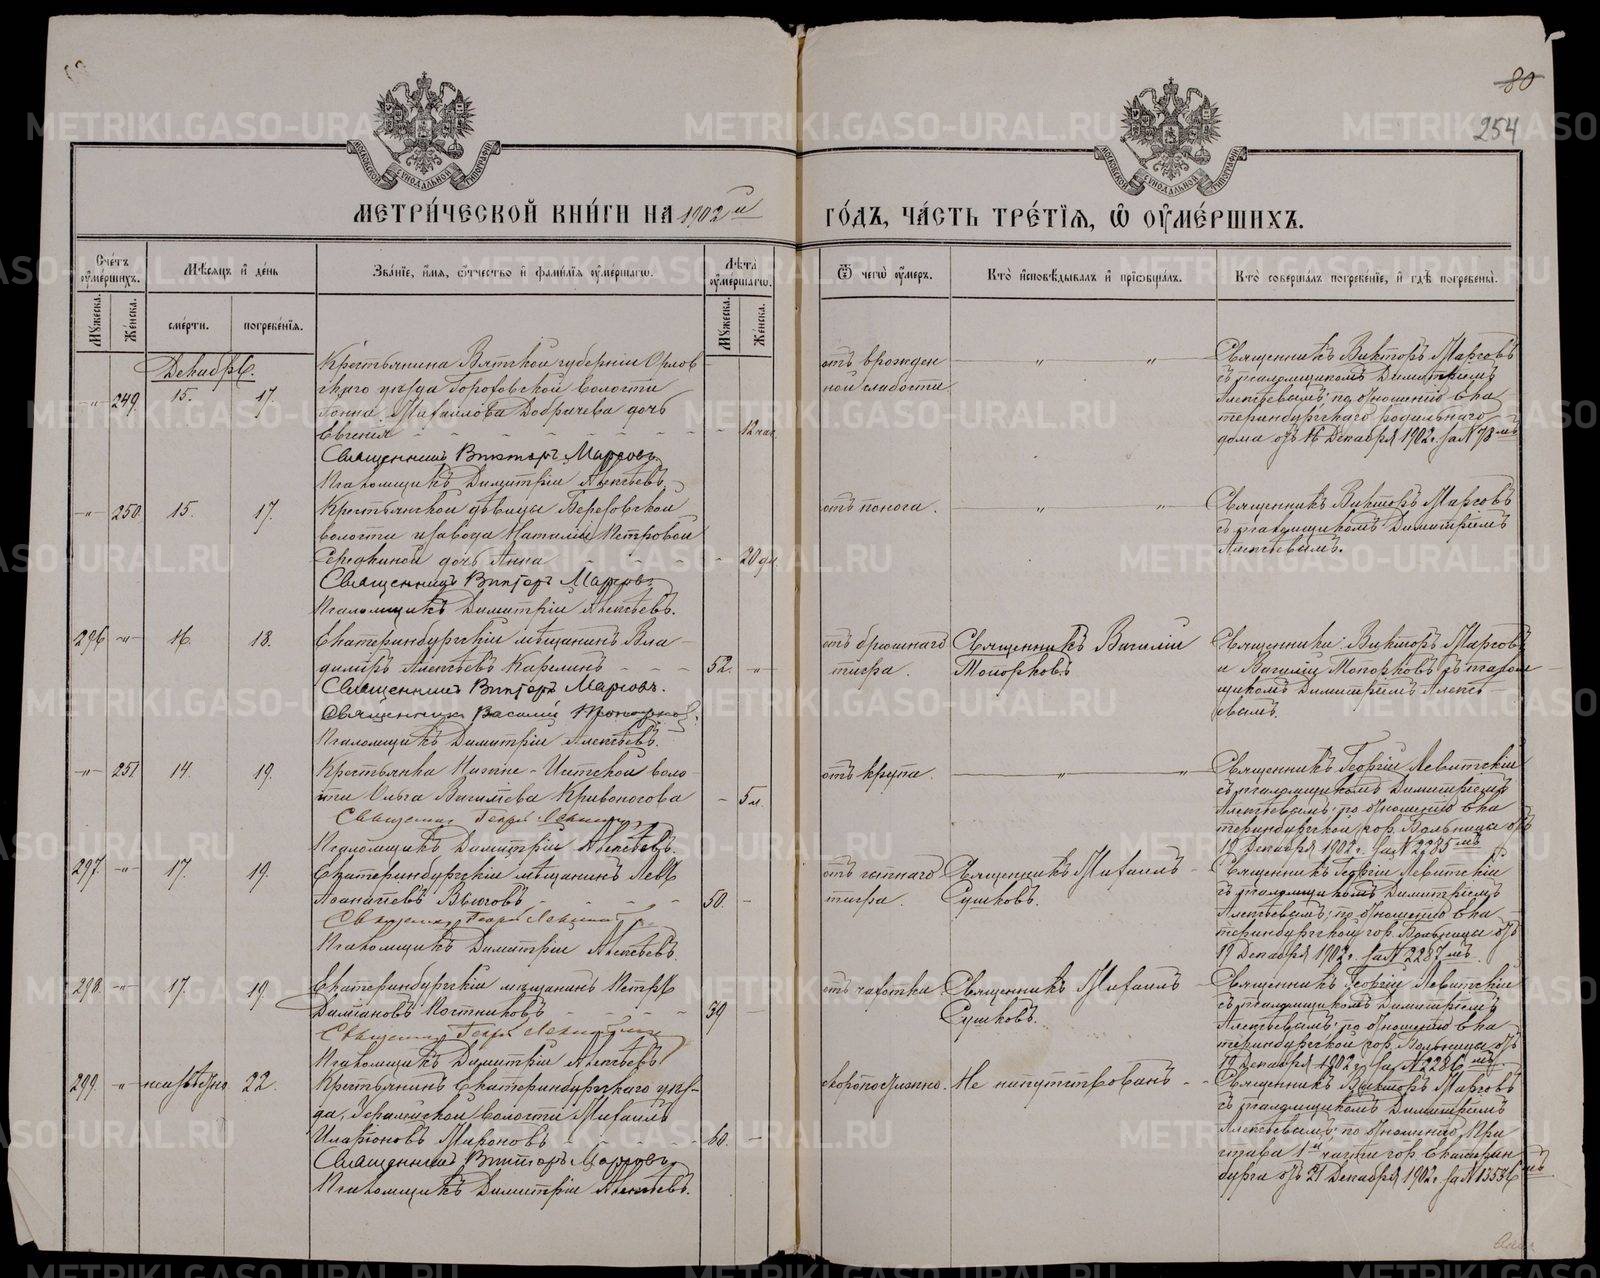 80
254
МОСКОВСКОЙ СѴНОДАЛЬНОЙ ТИПОГРАФІИ
МОСКОВСКОЙ СѴНОДАЛЬНОЙ ТИПОГРАФІИ
МЕТРИ́ЧЕСКОЙ КНИ́ГИ НА 1902й
ГО́ДЪ, ЧА́СТЬ ТРЕ́ТІЯ, Ѡ ОУМЕ́РШИХЪ.
Сче́тъ оуме́ршихъ.
Мѣсяцъ и де́нь
Зва́ніе, и́мя, о́тчество и фами́лія оуме́ршагѡ.
Лѣта оуме́ршагѡ.
Ѿ чегѡ̀ оу́меръ.
Кто̀ и҆сповѣ́дывалъ и҆ прїѡбща́лъ.
Кто̀ соверша́лъ погребе́ніе, и҆ гдѣ̀ погребены̀.
Мꙋжеска.
Же́нска.
сме́рти.
погребе́нія.
Мꙋжеска.
Же́нска.
Декабрь.
- " - 249. 15. 17.
Крестьянина Вятской губерніи Орлов
скаго уѣзда
волости
Михайлова Добрачева дочь
Евгенія - - - - - - - - 12 час
Священникъ Викторъ Марсовъ
Псаломщикъ Димитрій Алексѣевъ.
отъ врожден
ной слабости
" "
Священникъ Викторъ Марсовъ
съ псаломщикомъ Димитріемъ
Алексѣевымъ; по отношенію Ека
теринбургскаго родильнаго
дома отъ 16 Декабря 1902 г. за № 78 мъ
- " - 250. 15. 17.
Крестьянской дѣвицы Березовской
волости и завода Наталіи Петровой
Середкиной дочь Анна - - - - - 20 дн.
Священникъ Викторъ Марсовъ
Псаломщикъ Димитрій Алексѣевъ.
отъ поноса.
" "
Священникъ Викторъ Марсовъ
съ псаломщикомъ Димитріемъ
Алексѣевымъ.
296 - " - 16. 18.
Екатеринбургскій мѣщанинъ Вла
диміръ Алексѣевъ Карелинъ - - - 52. - " -
Священникъ Викторъ Марсовъ.
Священникъ Василій Топорковъ.
Псаломщикъ Димитрій Алексѣевъ.
отъ брюшнаго
тифа.
Священникъ Василій
Топорковъ
Священники: Викторъ Марсовъ
и Василій Топорковъ съ псалом
щикомъ Димитріемъ Алексѣ
евымъ.
- " - 251 14. 19.
Крестьянка Нижне-Исетской воло
сти Ольга Васильева Кривоносова - 5 м.
Священник Георгій Левитскій
Псаломщикъ Димитрій Алексѣевъ.
отъ крупа.
" "
Священникъ Георгій Левитскій
съ псаломщикомъ Димитріемъ
Алексѣевымъ; по отношенію Ека
теринбургской гор. Больницы отъ
19 Декабря 1902 г. за № 2285 мъ
297. - " - 17. 19.
Екатеринбургскій мѣщанинъ Левъ
Аѳанасіевъ - - - - - 50. -
Священник Георгій Левитскій
Псаломщикъ Димитрій Алексѣевъ.
отъ сыпнаго
тифа.
Священникъ Михаилъ -
Сушковъ.
Священникъ Георгій Левитскій
съ псаломщикомъ Димитріемъ
Алексѣевымъ; по отношенію Ека
теринбургской гор. Больницы отъ
19 Декабря 1902 г. за № 2287 мъ.
298. - " - 17. 19.
Екатеринбургскій мѣщанинъ Петръ
Даміановъ Постниковъ - - - - - 39 -
Священник Георгій Левитскій
Псаломщикъ Димитрій Алексѣевъ
отъ чахотки.
Священникъ Михаилъ -
Сушковъ.
Священникъ Георгій Левитскій
съ псаломщикомъ Димитріемъ
Алексѣевымъ; по отношенію Ека
теринбургской гор. Больницы отъ
19 Декабря 1902 г. за № 2286 мъ
299. - " - неизвѣстно 22.
Крестьянинъ Екатеринбургскаго уѣз-
да, волости Михаилъ
Иларіоновъ Мироновъ - - - - - 60. -
Священникъ Викторъ Марсовъ
Псаломщикъ Димитрій Алексѣевъ.
скоропостижно.
Не напутствованъ - -
Священникъ Викторъ Марсовъ
съ псаломщикомъ Димитріемъ
Алексѣевымъ; по отношенію При
става 1й части гор. Екатерин
бурга отъ 21 Декабря 1902 г. за № 13536 мъ